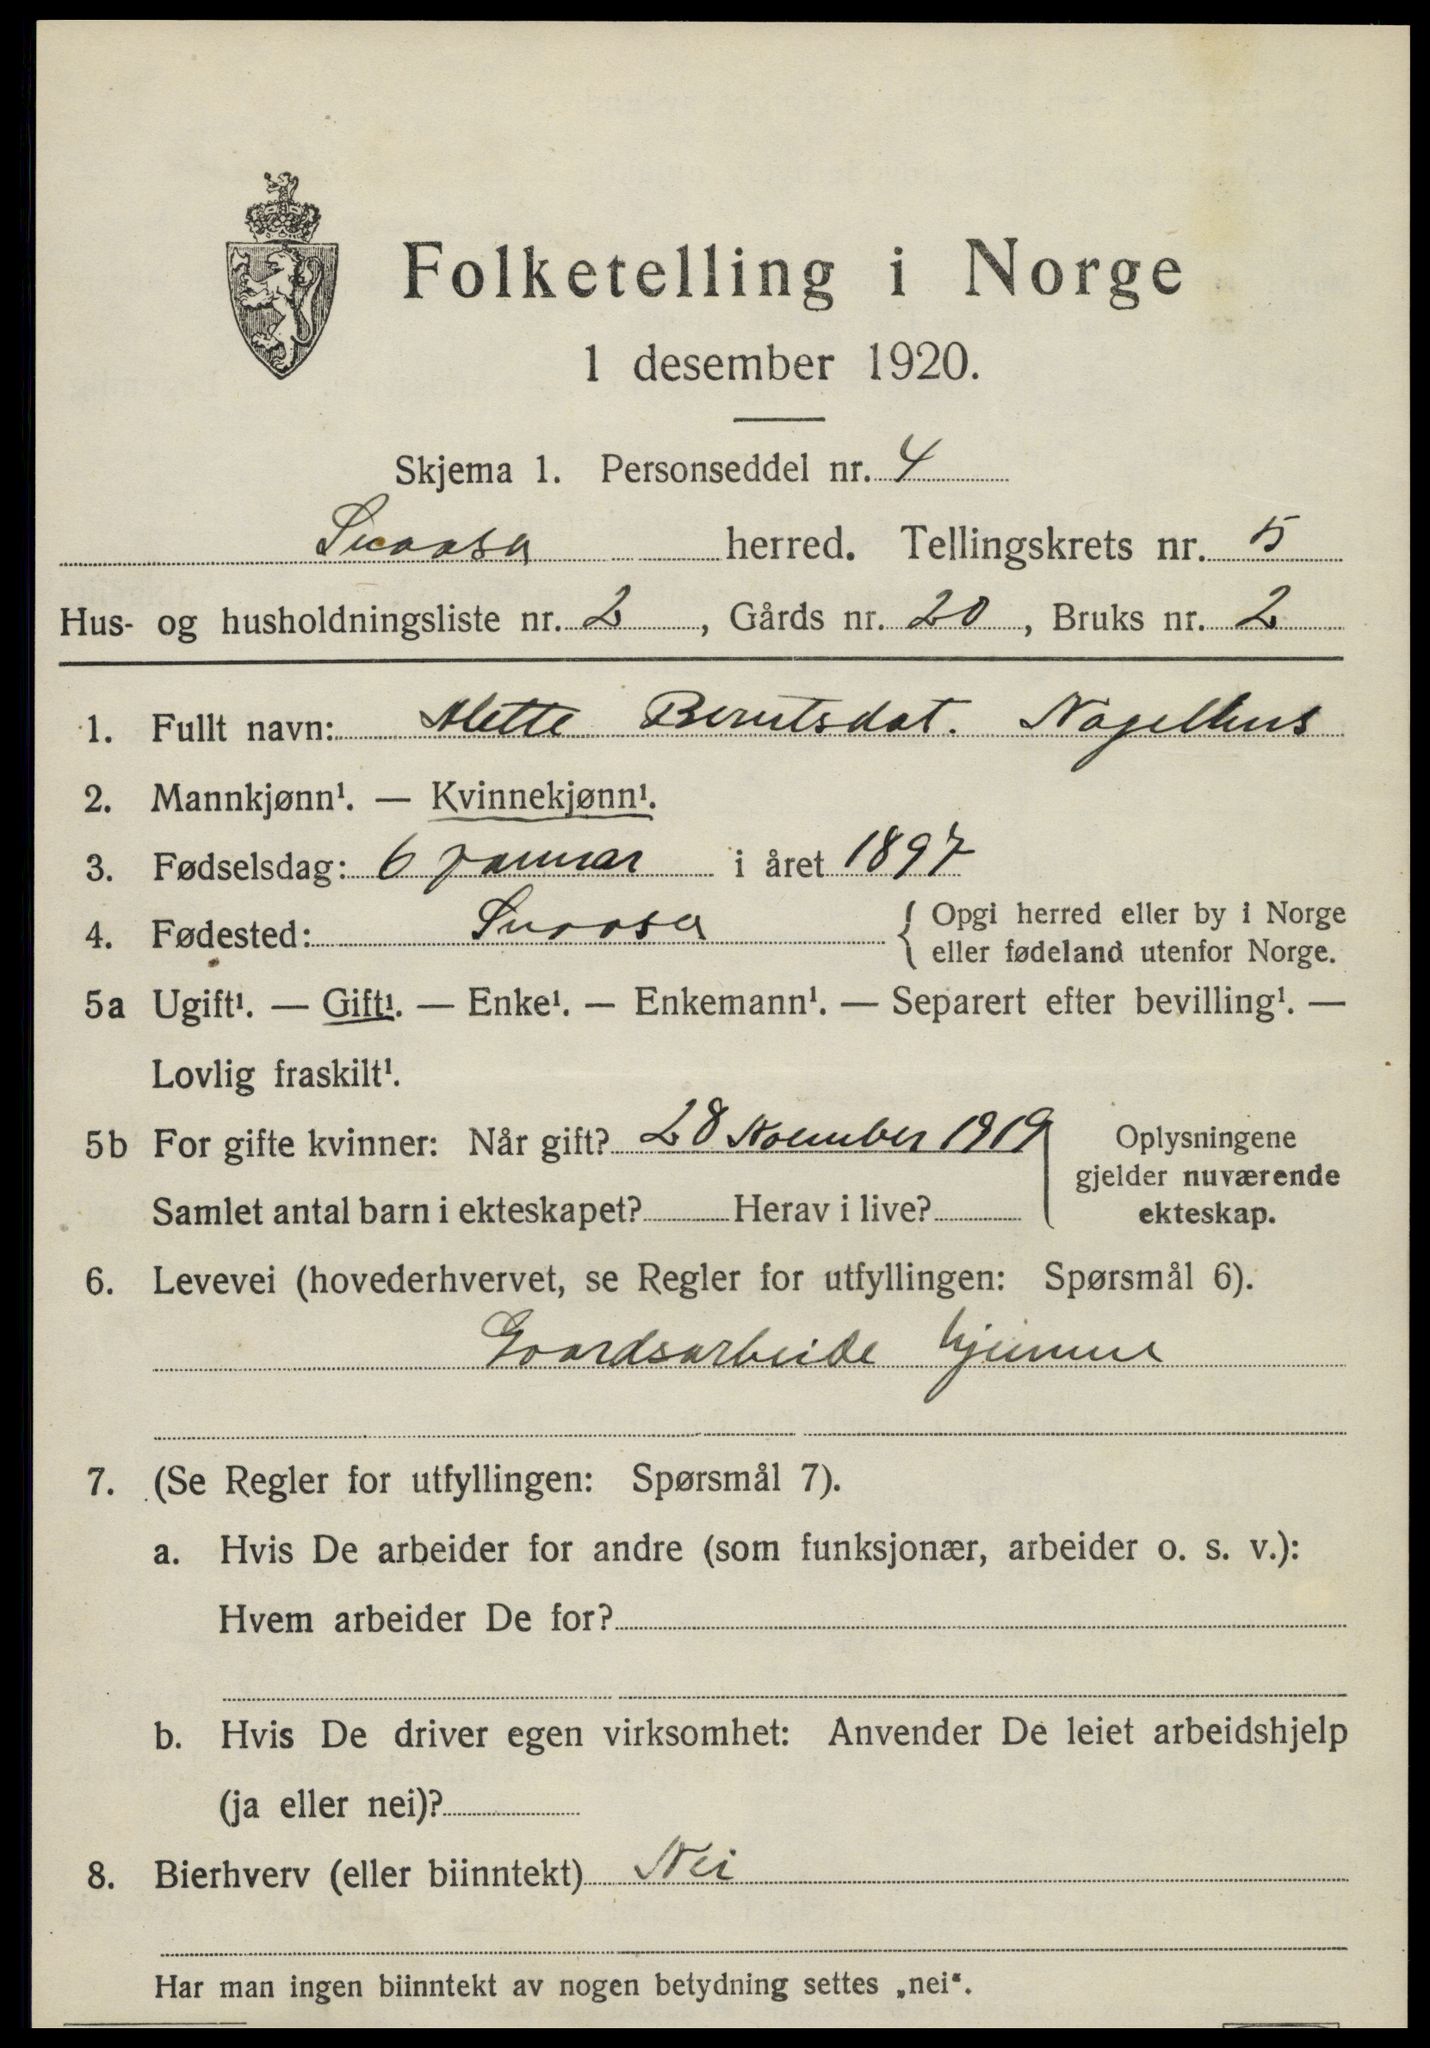 Folketelling i Norge
1 desember 1920.
Skjema 1. Personseddel nr. 4
Snaasa herred. Tellingskrets nr. 5
Hus- og husholdningsliste nr. 2, Gårds nr. 20, Bruks nr. 2
1. Fullt navn: Mette Berntsdat.
2. Mannkjønn¹. — Kvinnekjønn¹.
3. Fødselsdag: 6 januar i året 1897
4. Fødested: Snaasa { Opgi herred eller by i Norge
eller fødeland utenfor Norge.
5a Ugift¹. — Gift¹. — Enke¹. — Enkemann¹. — Separert efter bevilling¹. —
Lovlig fraskilt¹.
5b For gifte kvinner: Når gift? 28 November 1919
Samlet antal barn i ekteskapet? Herav i live?
Oplysningene
gjelder nuværende
ekteskap.
6. Levevei (hovederhvervet, se Regler for utfyllingen: Spørsmål 6).
Gaardsarbeide hjemme
7. (Se Regler for utfyllingen: Spørsmål 7).
a. Hvis De arbeider for andre (som funksjonær, arbeider o. s. v.):
Hvem arbeider De for?
b. Hvis De driver egen virksomhet: Anvender De leiet arbeidshjelp
(ja eller nei)?
8. Bierhverv (eller biinntekt) Nei
Har man ingen biinntekt av nogen betydning settes „nei“.